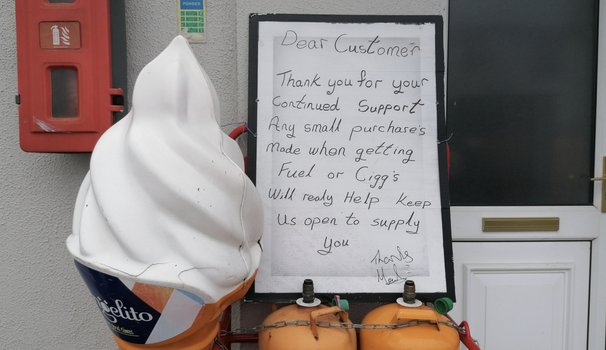 Dear Customer
Thank you for your
Continued Support
Any small purchase's
Made when getting
Fuel or Cigg's
Will realy Help Keep
Us open to supply
you
Thanks